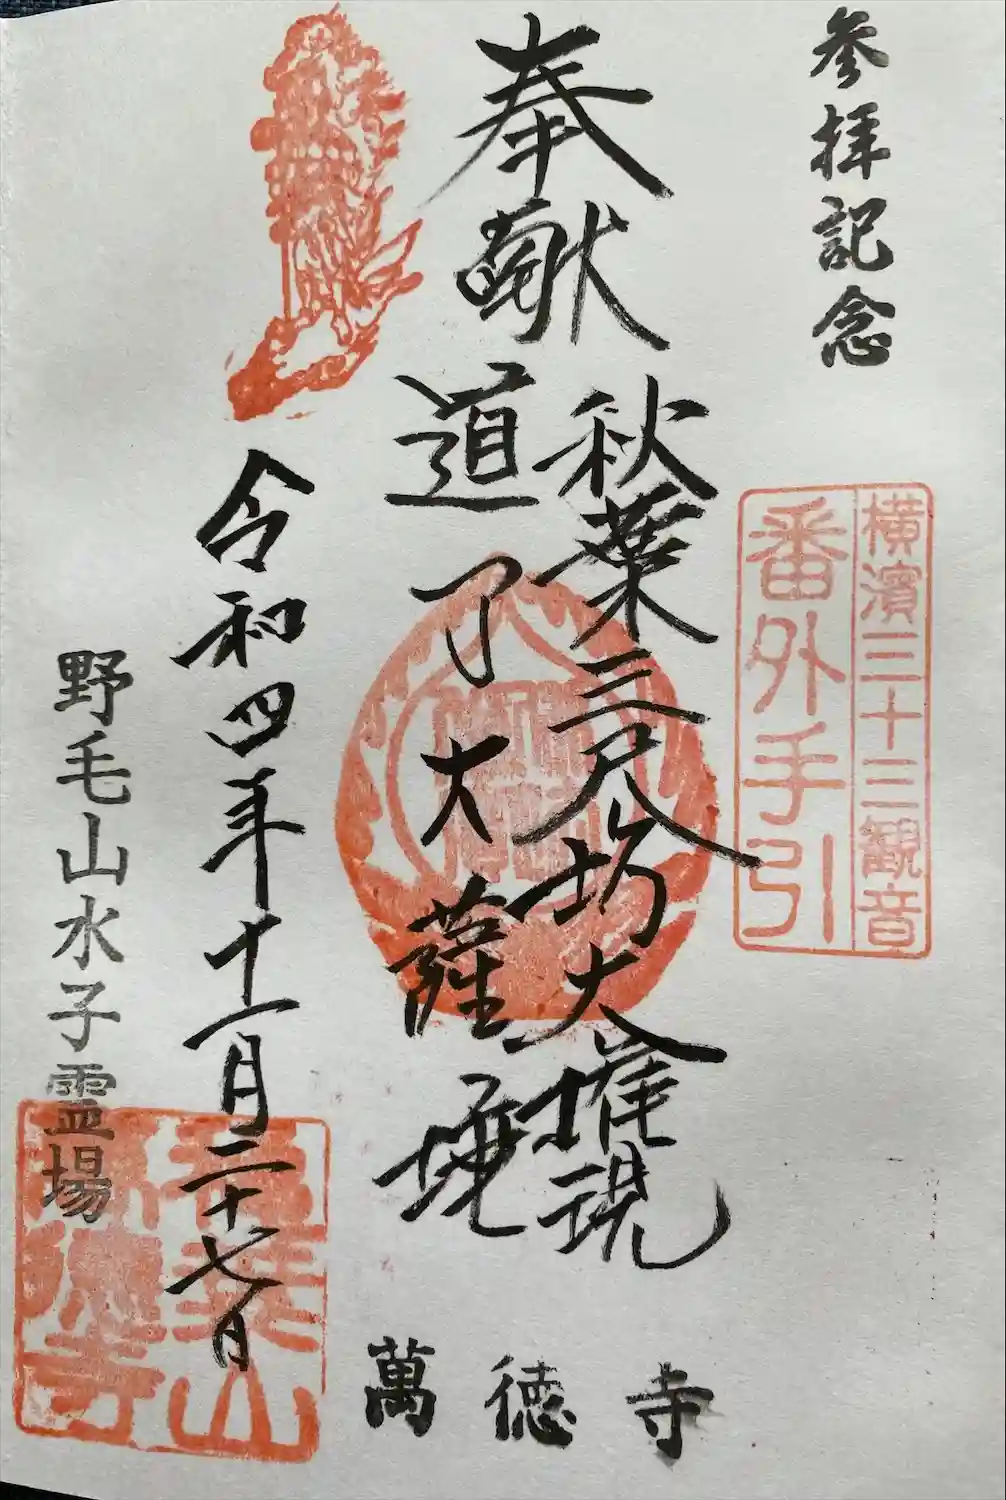 参拝記念
横濱三十三観音
番外手引
奉献
秋葉三尺坊大権現
道了大薩埵
令和四年十一月二十七日
野毛山水子霊場
萬徳寺